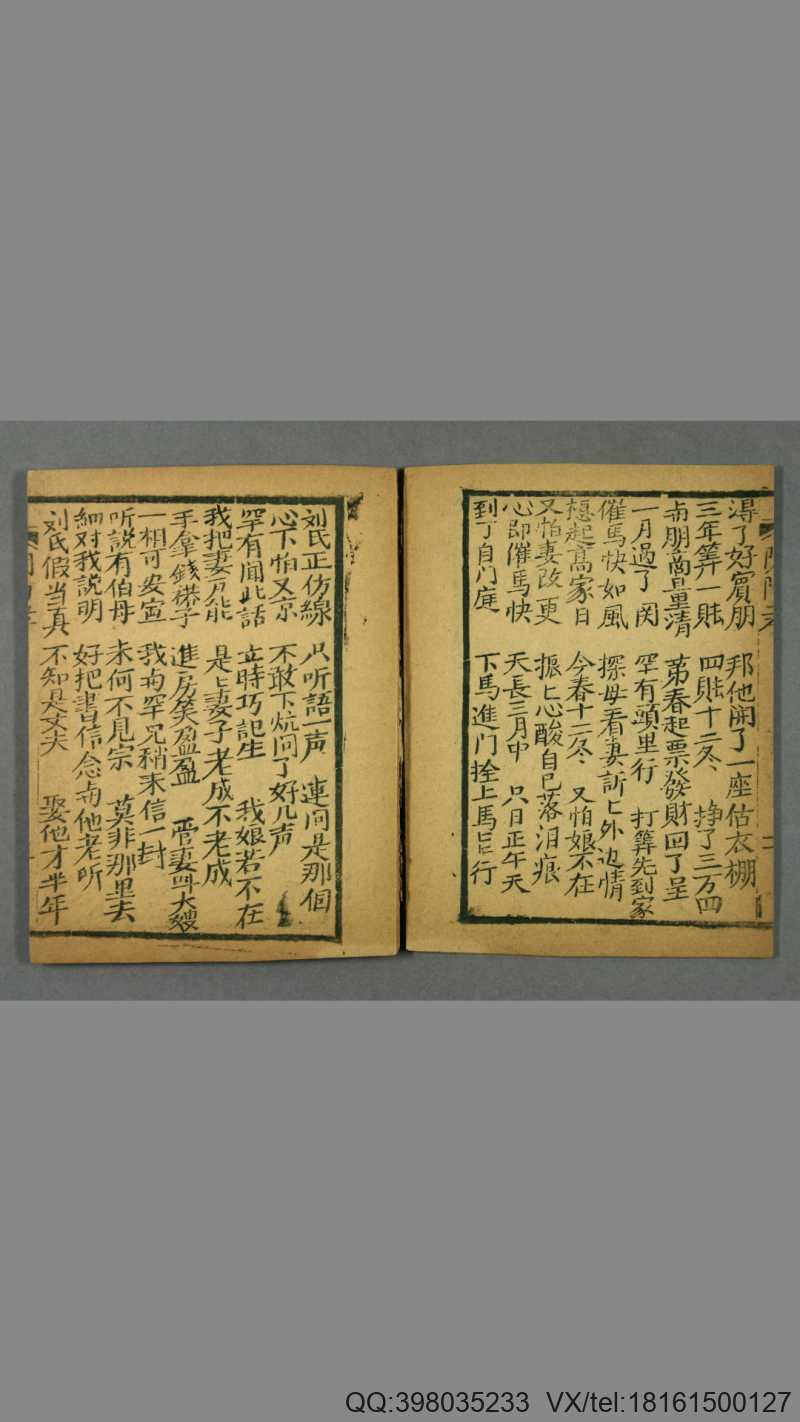 得了好賔朋 邦他開了一座估衣棚
三年筭一賬 四賬十二冬 挣了三万四
朋商量清 苐春起票發財回了呈
一月過了関 罕有頭里行 打筭先到家
催馬快如風 探母看妻訢匕外边情
想起髙家日 今春十二冬 又怕娘不在
又怕妻改更 振匕心酸自己落泪痕
心即催馬快 天長三月中 只日正午天
到了自门庭 下馬進门拴上馬 行
刘氏正仿線 只听語一声 連问是那個
心下怕又京 不敢下炕问了好几声
罕有闻此話 立時巧記生 我娘若不在
我把妻 能 是匕妻子老成不老成
手拿錢褡子 進房笑盈盈 管妻叫大嫂
一相可安宣 我 罕兄稍来信一封
听説有伯母 未何不見宗 莫非那里去
細对我説明 好把書信念 他老听
刘氏假当真 不知是丈夫 娶他才半年
QQ:398035233 VX/tel:18161500127